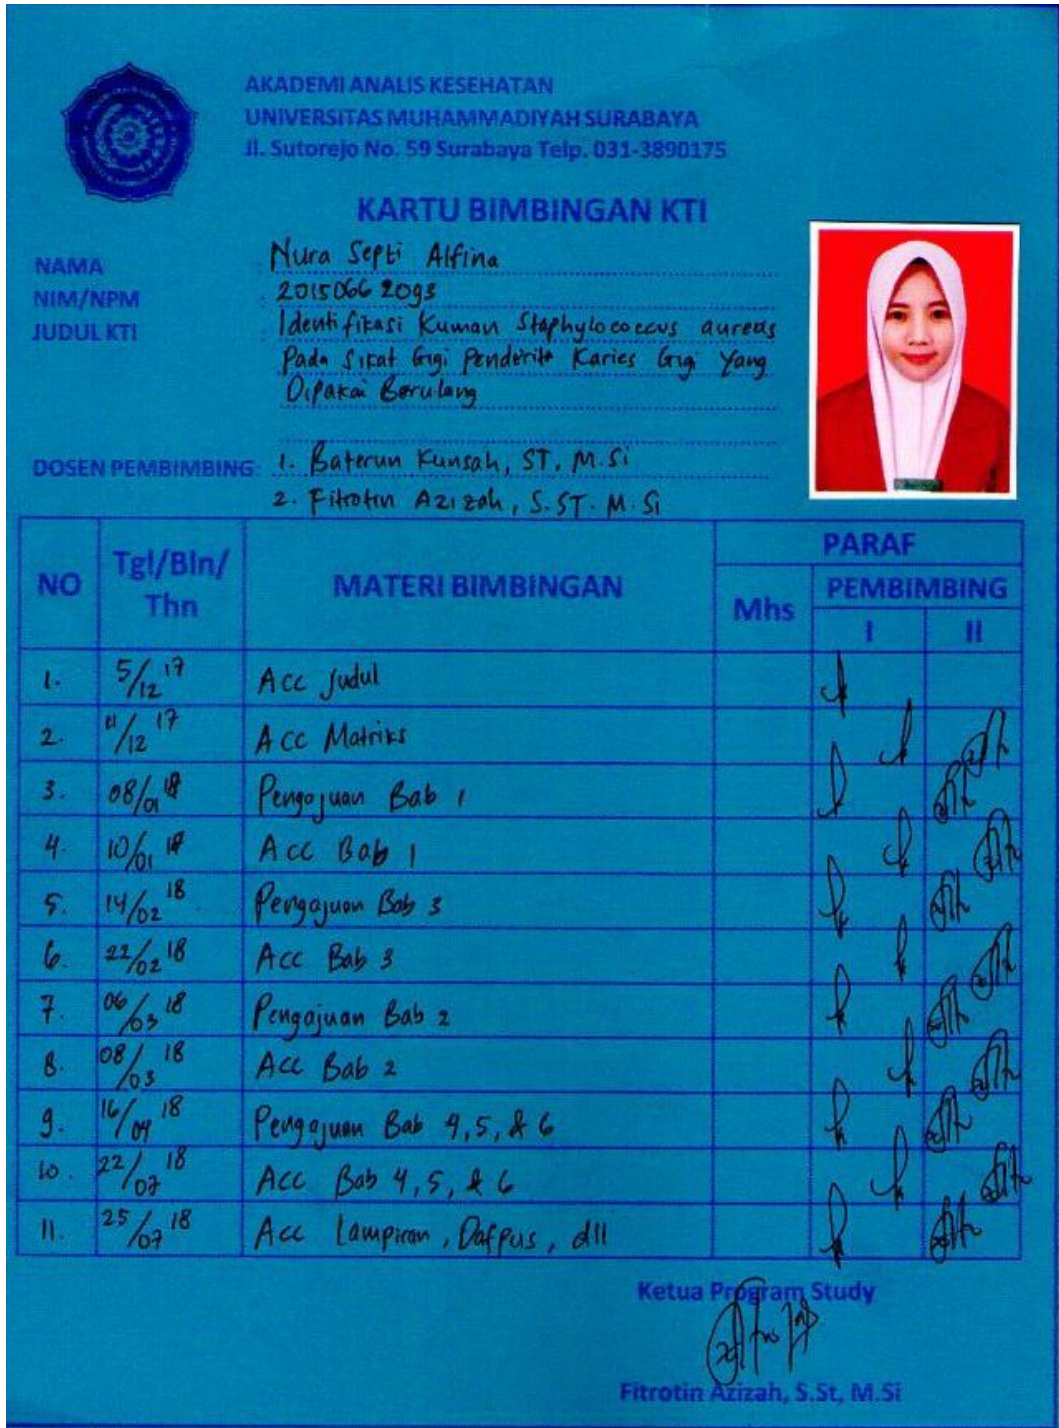 AKADEMI ANALIS KESEHATAN
UNIVERSITAS MUHAMMADIYAH SURABAYA
Jl. Sutorejo No. 59 Surabaya Telp. 031-3890175
KARTU BIMBINGAN KTI
NAMA : Nura Septi Alfina
NIM/NPM : 20150662093
JUDUL KTI : Identifikasi Kuman Staphylococcus aureus
Pada Sikat Gigi Penderita Karies Gigi Yang
Dipakai Berulang
DOSEN PEMBIMBING: 1. Baterun Kunsah, ST, M.Si
2. Fitrotin Azizah, S.ST. M.Si
NO Tgl/Bln/Thn MATERI BIMBINGAN PARAF
Mhs PEMBIMBING
I II
1. 5/12 17 Acc Judul
2. 11/12 17 Acc Matriks
3. 08/01 18 Pengajuan Bab 1
4. 10/01 18 Acc Bab 1
5. 14/02 18 Pengajuan Bab 3
6. 22/02 18 Acc Bab 3
7. 06/03 18 Pengajuan Bab 2
8. 08/03 18 Acc Bab 2
9. 16/07 18 Pengajuan Bab 4,5, & 6
10. 22/07 18 Acc Bab 4,5, & 6
11. 25/07 18 Acc Lampiran, Dafpus, dll
Ketua Program Study
Fitrotin Azizah, S.St, M.Si